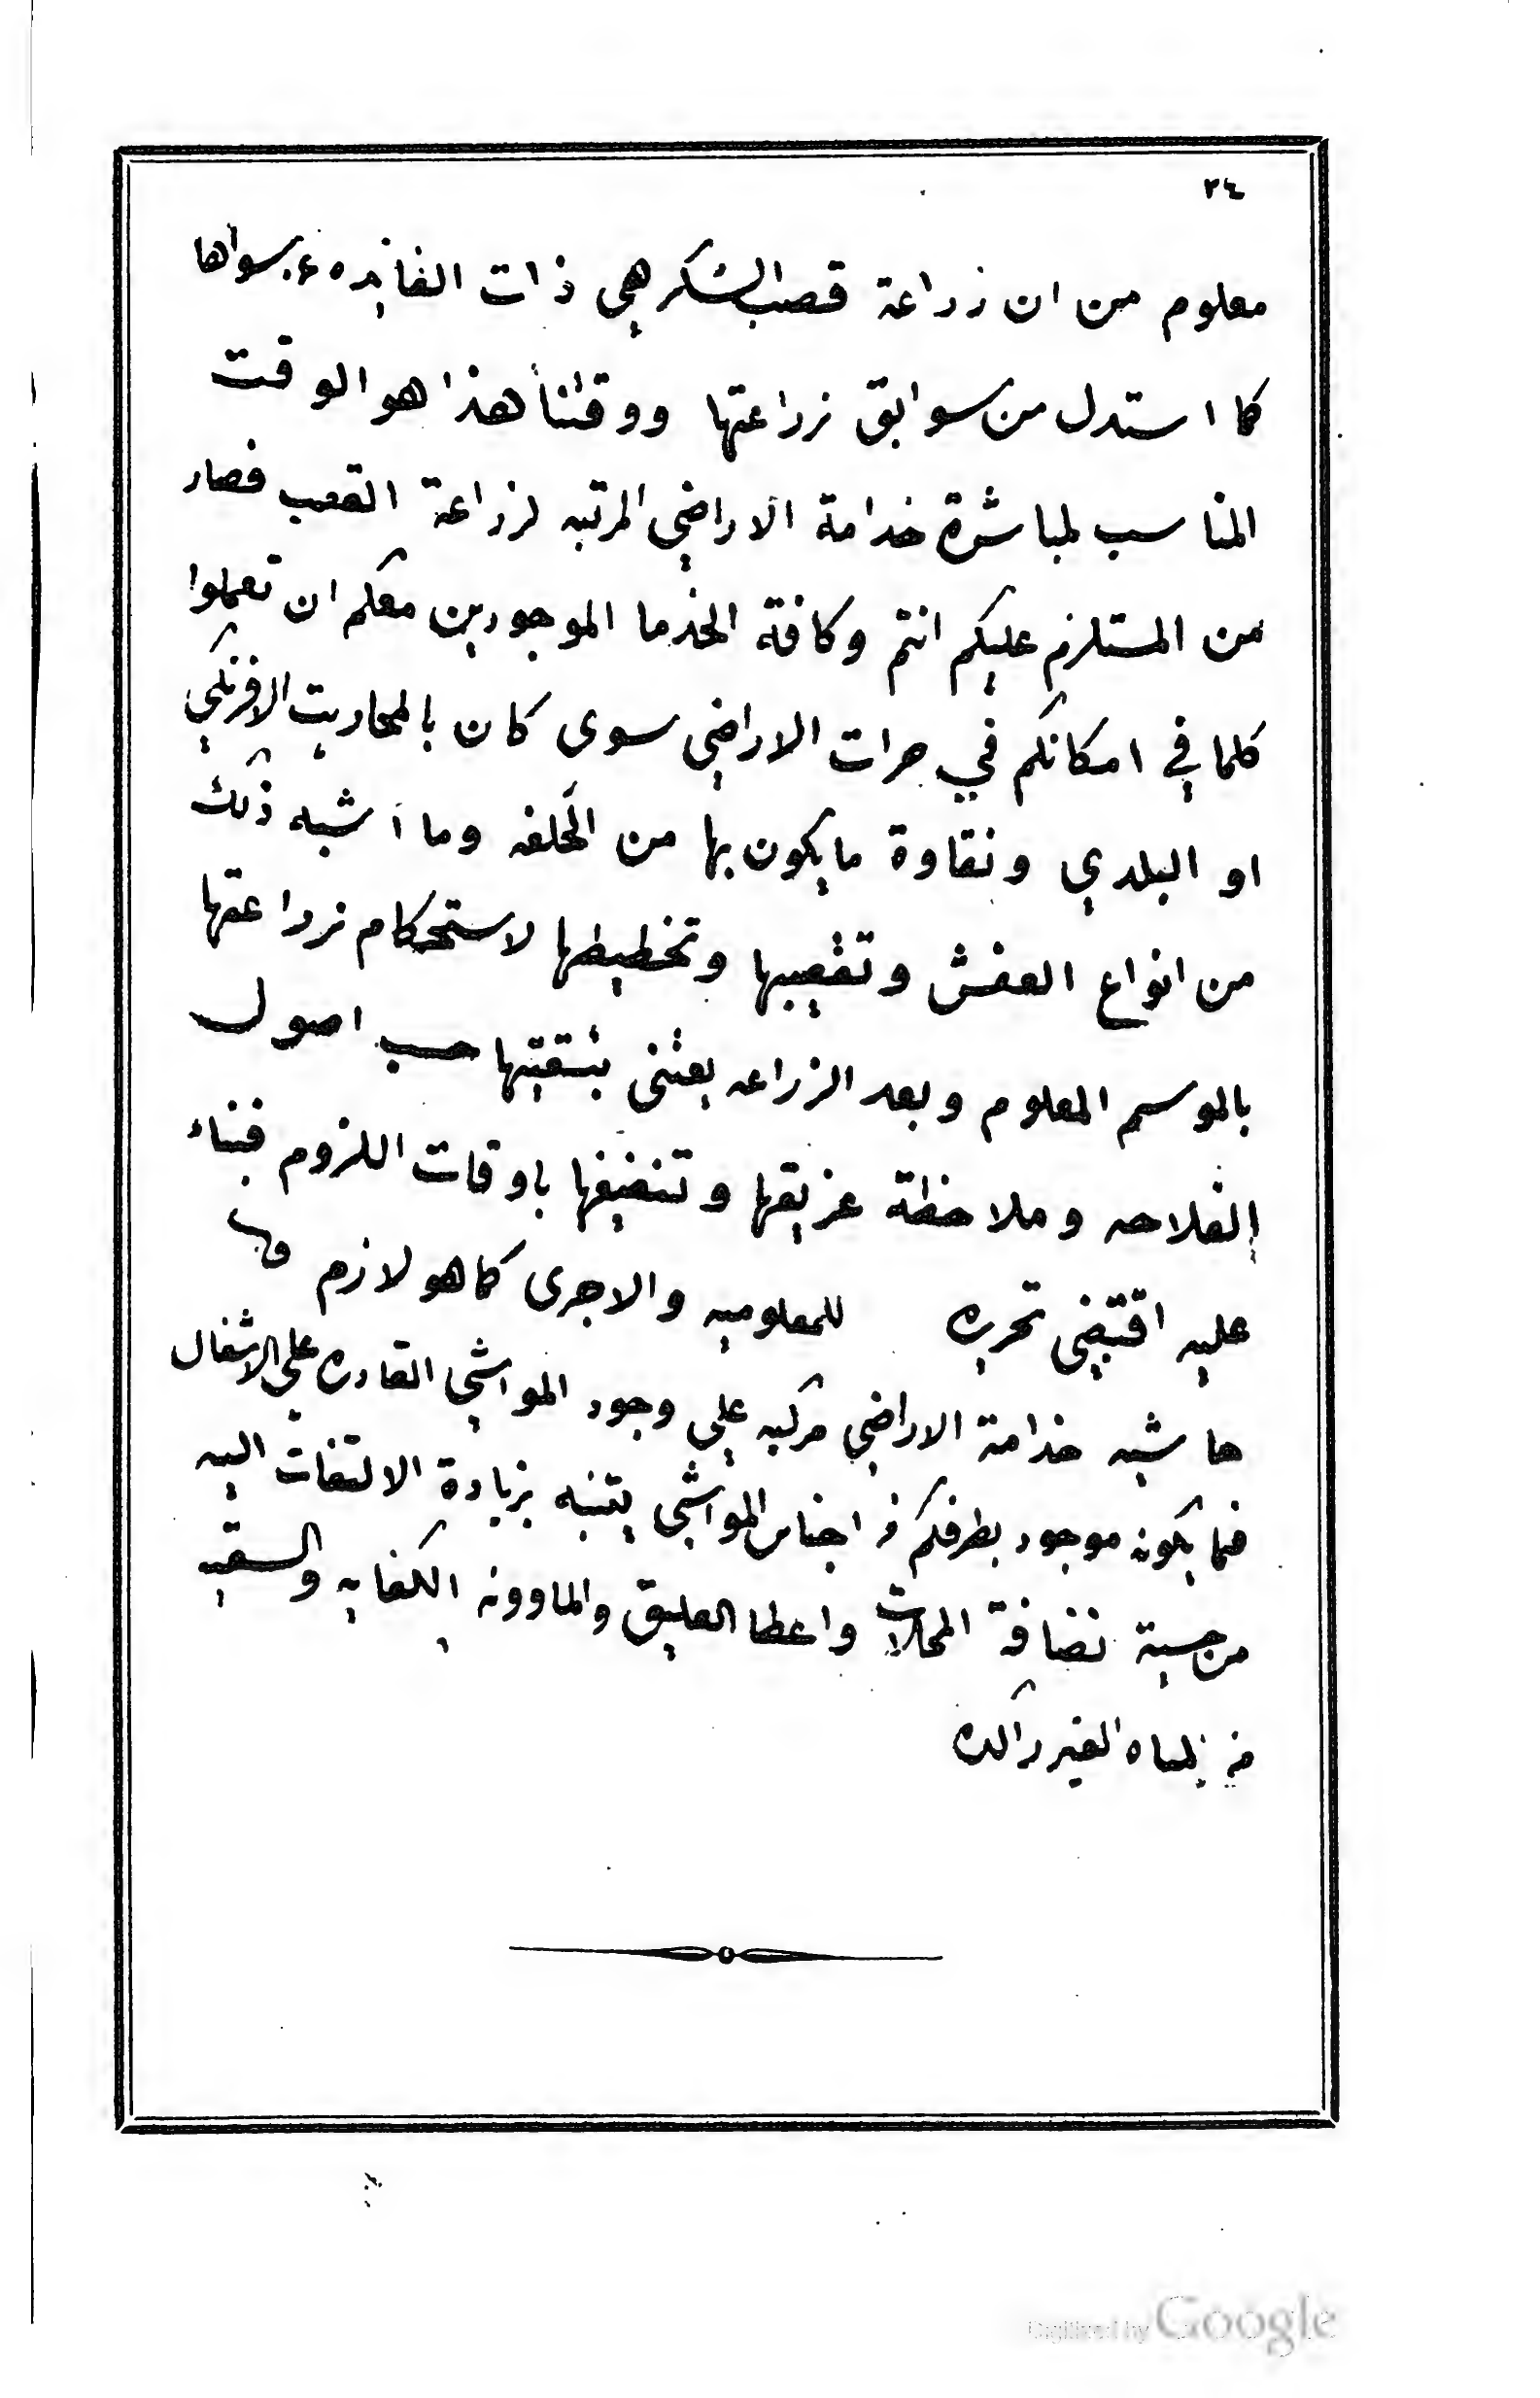 ٢٤
معلوم من ان زراعة قصب السكر هي ذات الفايده عن سواها
كما استدل من سوابق زراعتها ووقتنا هذا هو الوقت
المناسب لمباشرة خدامة الاراضي المرتبه لزراعة القصب فصار
من المستلزم عليكم انتم وكافة الخدما الموجودين معكم ان تعملوا
كلما في امكانكم في حرات الاراضي سوى كان بالمحاريت الافرنكي
او البلدي ونقاوة ما يكون بها من الحلفه وما اشبه ذلك
من انواع العفش وتقصيبها وتخطيطها لاستحكام زراعتها
بالموسم المعلوم وبعد الزراعه يعتنى بتسقيتها حسب اصول
الفلاحه وملاحظة عزيقها وتنضيفها باوقات اللزوم فبناء
عليه اقتضي تحريره للمعلوميه والاجرى كما هو لازم
حاشيه خدامة الاراضي مركبه علي وجود المواشي القادره علي الاشغال
فما يكون موجود بطرفكم من اجناس المواشي يتنبه بزيادة الالتفات اليه
من حسية نضافة المحلات واعطا العليق والماوونه الكفايه والسقيه
من المياه الغير راكده
Digitized by Google